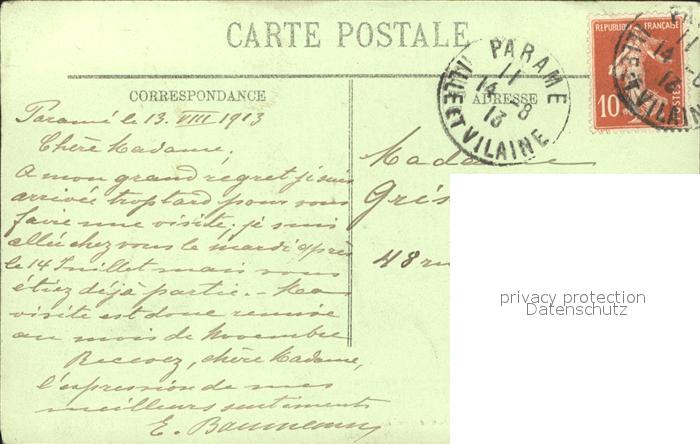 CARTE POSTALE
CORRESPONDANCE
ADRESSE
Paramé le 13 VIII 1913
Chère Madame,
A mon grand regret je suis
arrivée trop tard pour vous
faire une visite; je suis
allée chez vous le mardi après
le 14 Juillet mais vous
étiez déjà partie. – Ma
visite est donc remise
au mois de Novembre
Recevez, chère Madame,
l'expression de mes
meilleurs sentiments
E. Baumann
Madame
Grés
48 ru
PARAME
11
14 - 8
13
ILLE ET VILAINE
REPUBLIQUE FRANÇAISE
10
privacy protection
Datenschutz